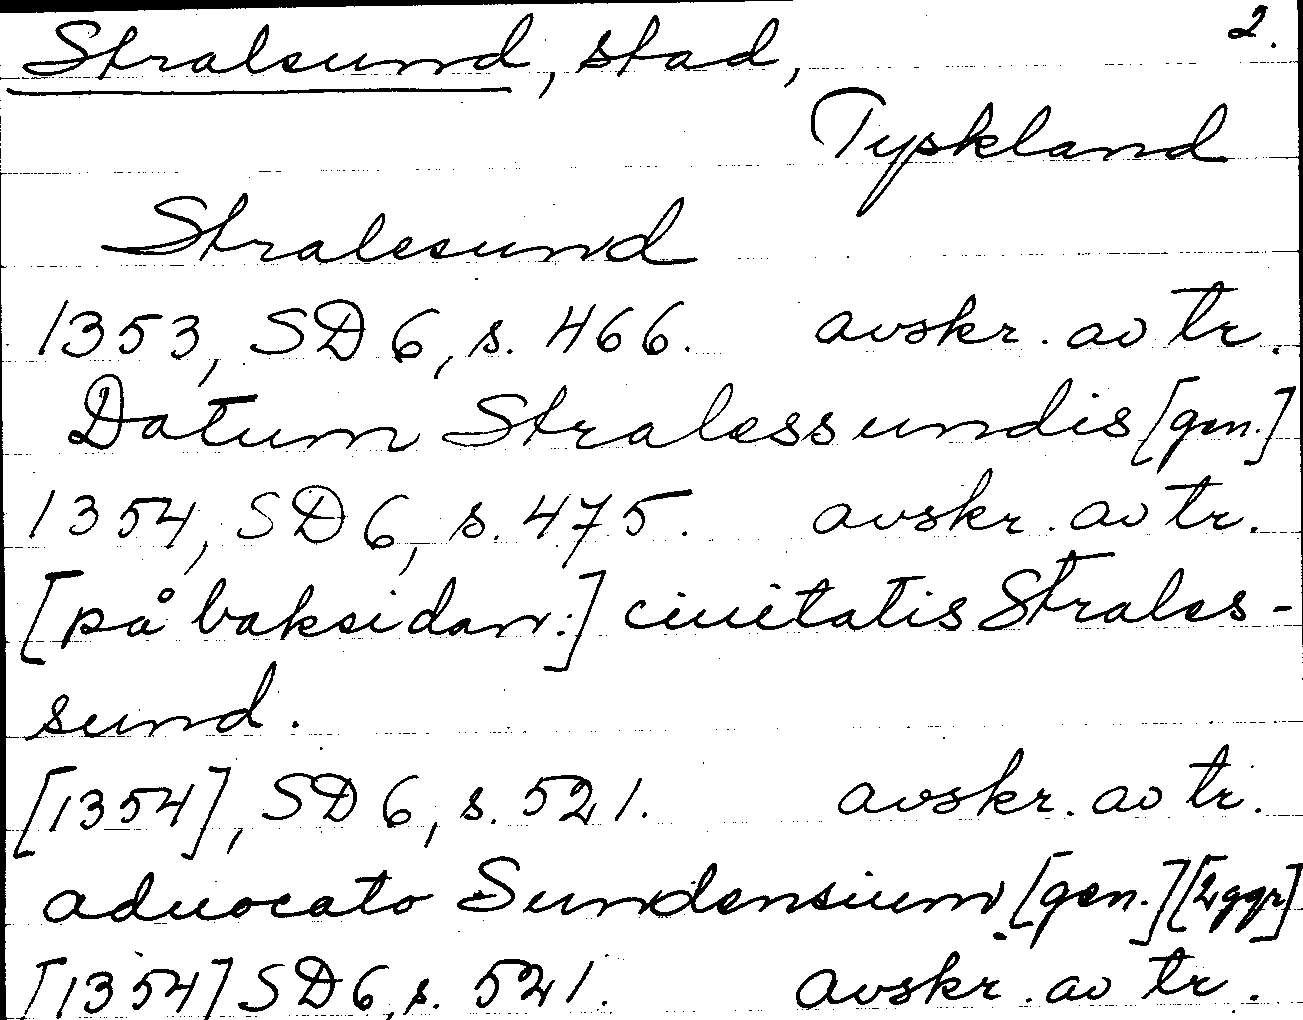 2.
Stralsund, stad,
Tyskland
Stralesund
1353, SD 6, s. 466. avskr. av tr.
Datum Stralessundis [gen.]
1354, SD 6, s. 475. avskr. av tr.
[på baksidan:] ciuitatis Strales-
sund.
[1354], SD 6, s. 521. avskr. av tr.
aduocato Sundensium [gen.] [2 ggr]
[1354] SD 6, s. 521. avskr. av tr.